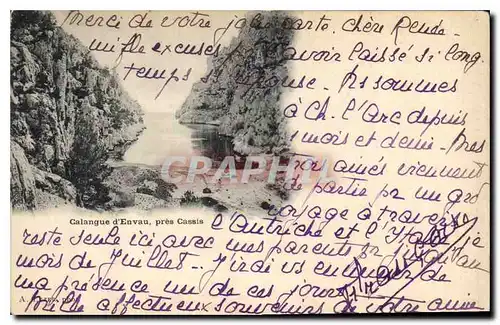 Merci de votre jolie carte, chère Rende-
mille excuses d'avoir laissé si long-
temps sans réponse. Ns sommes
à Ch. l'Arc depuis
1 mois et demi. Mes
aînés viennent
de partir pr un gd
voyage à travers
l'Autriche et l'Italie. Je
reste seule ici avec mes parents jusqu'au
mois de Juillet. J'irai vs ennuyer de
ma présence un de ces jours
Mille affectueux souvenirs de votre amie
CARPA
Calangue d'Envau, près Cassis